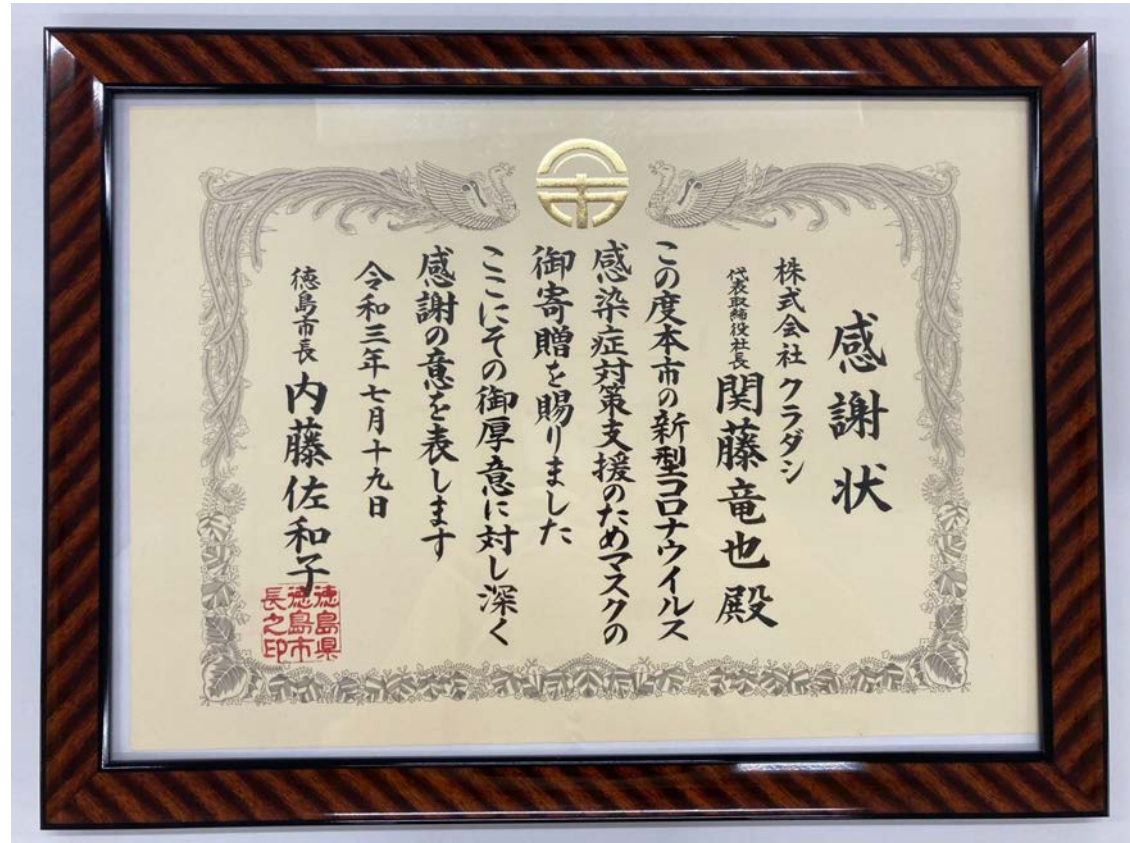 感謝状
株式会社クラダシ
代表取締役社長 関藤竜也殿
この度本市の新型コロナウイルス
感染症対策支援のためマスクの
御寄贈を賜りました
ここにその御厚意に対し深く
感謝の意を表します
令和三年七月十九日
徳島市長 内藤佐和子
徳島県
徳島市
長之印